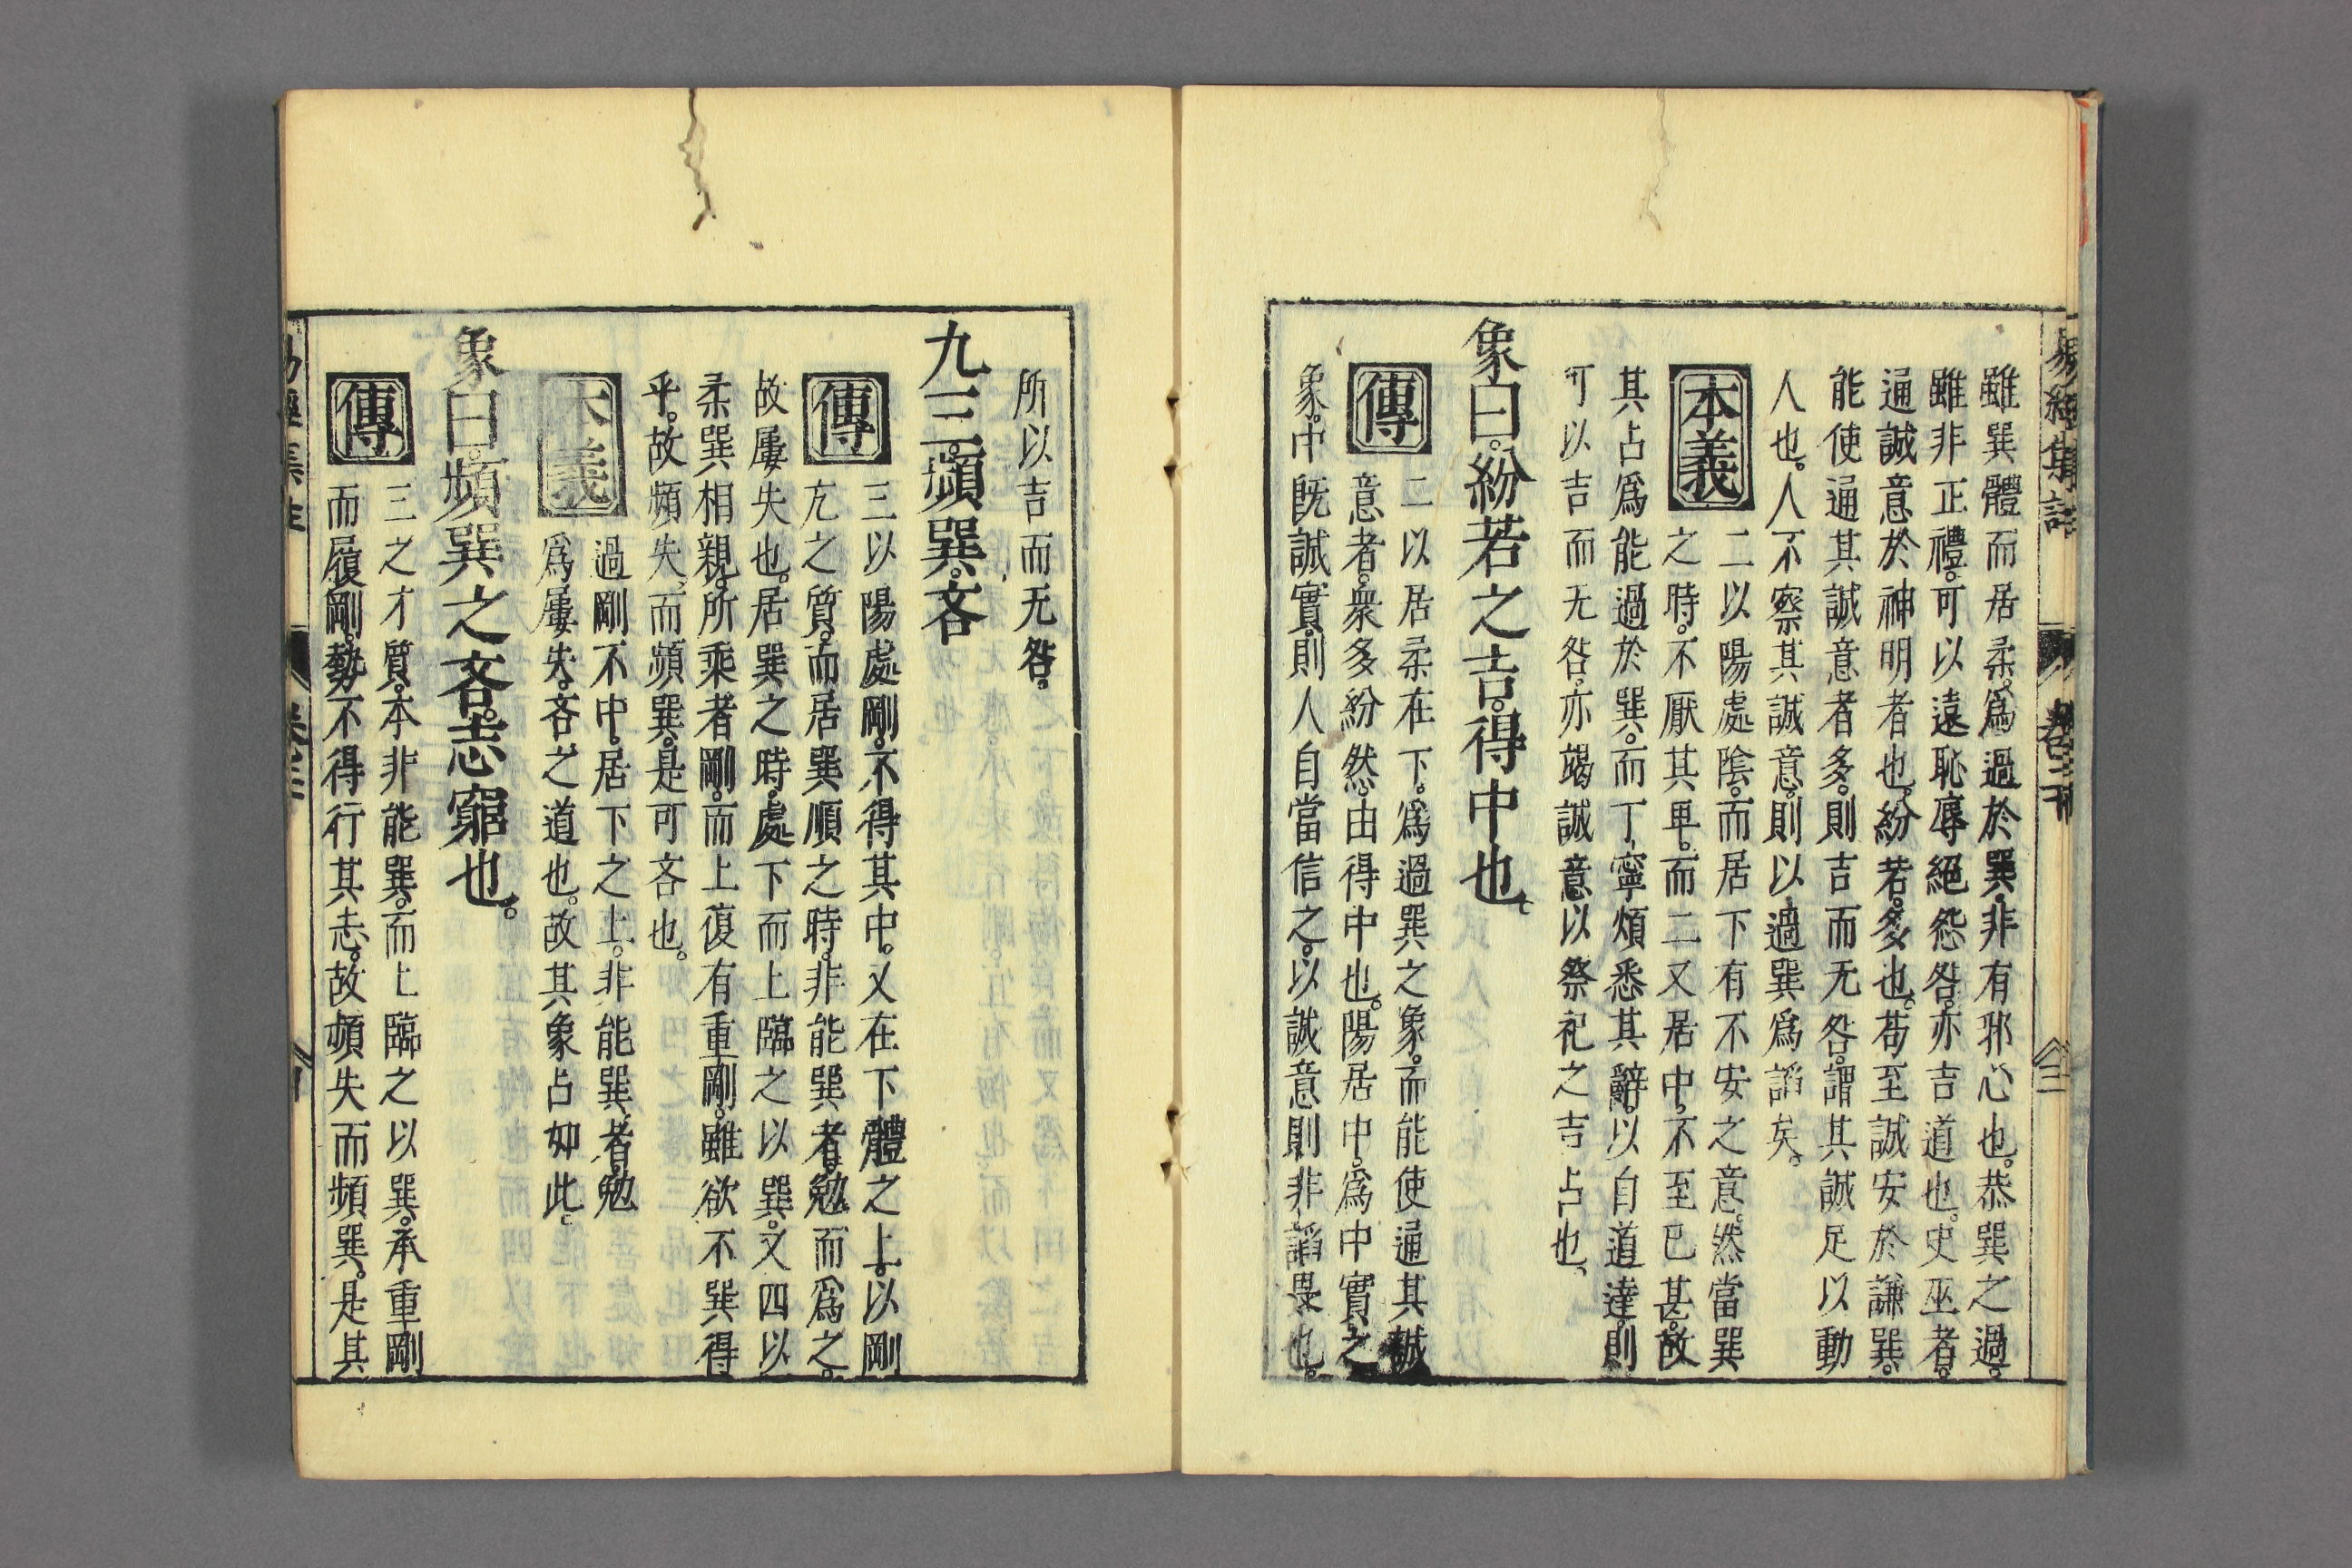 易經集註 卷之十 八三
雖巽體而居柔。爲過於巽。非有邪心也。恭巽之過。
雖非正禮。可以遠恥辱絕怨咎。亦吉道也。史巫者。
通誠意於神明者也。紛若。多也。苟至誠安於謙巽。
能使通其誠意者多。則吉而无咎。謂其誠足以動
人也。人不察其誠意。則以過巽爲諂矣。
本義
二以陽處陰。而居下有不安之意。然當巽
之時。不厭其卑。而二又居中。不至已甚。故
其占爲能過於巽。而丁寧煩悉其辭。以自道達。則
可以吉而无咎。亦竭誠意以祭祀之吉占也。
象曰。紛若之吉。得中也。
傳
二以居柔在下。爲過巽之象。而能使通其誠
意者。衆多紛然。由得中也。陽居中。爲中實之
象。中既誠實。則人自當信之。以誠意則非諂畏也。
所以吉而无咎。
九三。頻巽。吝
傳
三以陽處剛。不得其中。又在下體之上。以剛
亢之質。而居巽順之時。非能巽者。勉而爲之。
故屢失也。居巽之時。處下而上臨之以巽。又四以
柔巽相親。所乘者剛。而上復有重剛。雖欲不巽得
乎。故頻失而頻巽。是可吝也。
本義
過剛不中。居下之上。非能巽者。勉
爲屢失。吝之道也。故其象占如此。
象曰。頻巽之吝。志窮也。
傳
三之才質。本非能巽。而上臨之以巽。承重剛
而履剛。勢不得行其志。故頻失而頻巽。是其